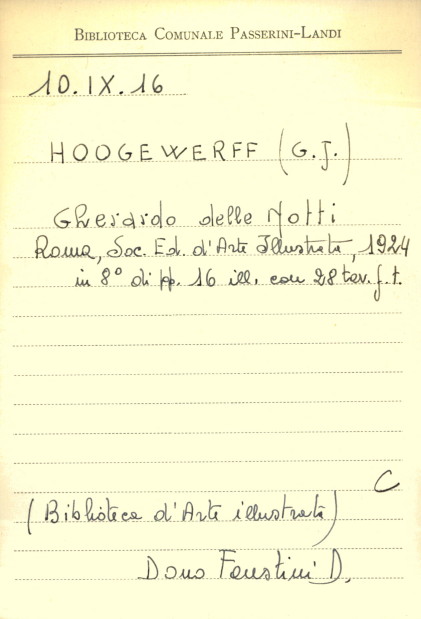 BIBLIOTECA COMUNALE PASSERINI-LANDI
10.IX.16
HOOGEWERFF (G.J.)
Gherardo delle Notti
Roma, Soc. Ed. d'Arte Illustrata, 1924
in 8° di pp. 16 ill. con 28 tav. f.t.
C
(Biblioteca d'Arte illustrata)
Dono Faustini D.